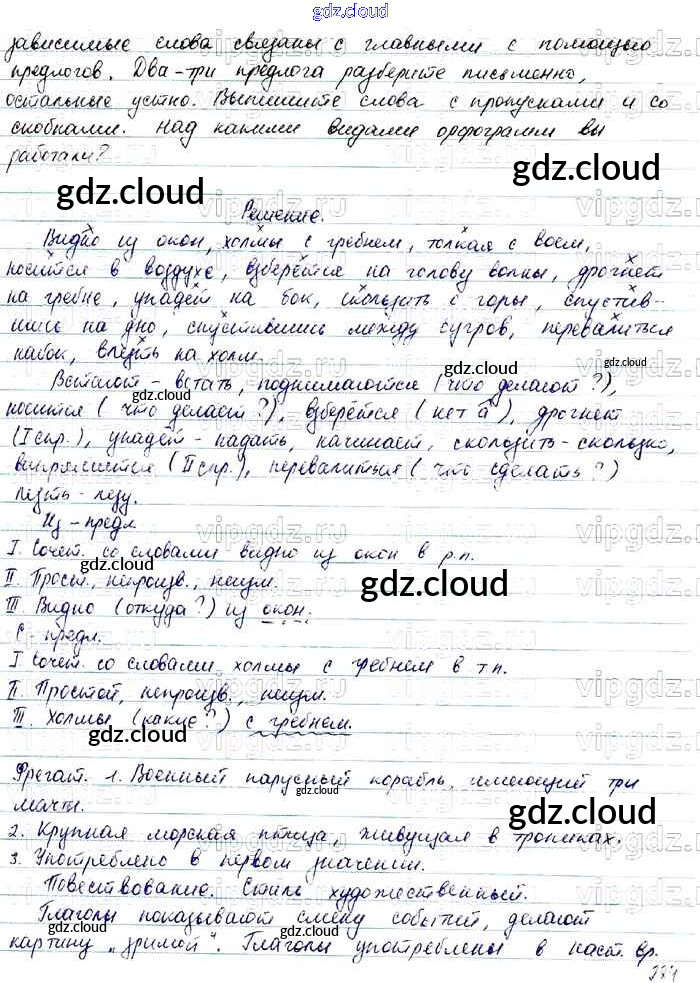 gdz.cloud
зависимые слова связаны с главными с помощью
предлогов. Два-три предлога разберите письменно,
остальные устно. Выпишите слова с пропусками и со
скобками. Над какими видами орфограмм вы
работали?
gdz.cloud
gdz.cloud
Решение.
Видно из окон, холмы с гребнем, толкая с воем,
носится в воздухе, взберётся на голову волны, дрогнет
на гребне, упадёт на бок, скользить с горы, спустив-
шись на дно, спустившись между бугров, перевалиться
набок, влезть на холм.
gdz.cloud
gdz.cloud
Встают - встать, поднимаются (что делают?),
носится (что делает?), взберётся (нет а), дрогнет
(I спр.), упадёт - падать, начинает, скользить - скользко,
выпрямится (II спр.), перевалиться (что сделать?)
лезть - лезу.
Из - предл.
I. Сочет. со словами видно из окон в р.п.
gdz.cloud
II. Прост., непроизв., неизм.
gdz.cloud
III. Видно (откуда?) из окон.
С - предл.
I Сочет. со словами холмы с гребнем в т.п.
II. Простой, непроизв., неизм.
III. Холмы (какие?) с гребнем.
gdz.cloud
Фрегат. 1. Военный парусный корабль, имеющий три
мачты.
gdz.cloud
gdz.cloud
2. Крупная морская птица, живущая в тропиках.
3. Употреблено в первом значении.
Повествование. Стиль художественный.
gdz.cloud
Глаголы показывают смену событий, делают
картину „зримой“. Глаголы употреблены в наст. вр.
gdz.cloud
gdz.cloud